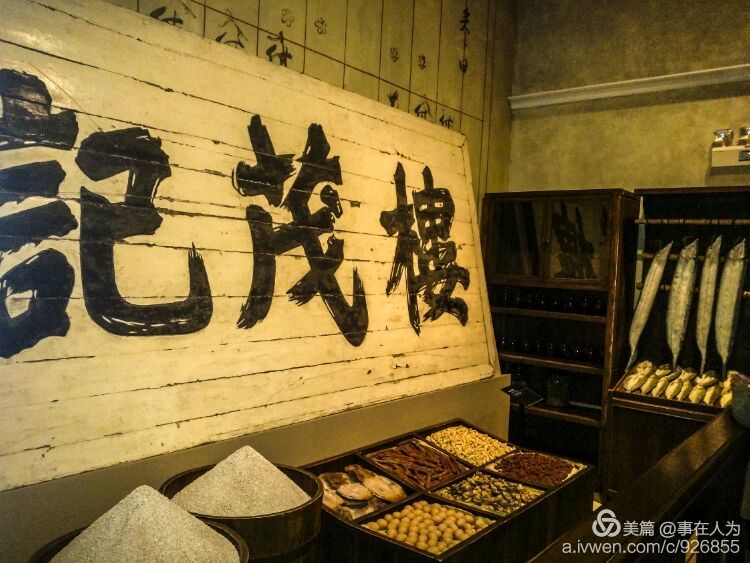 樓茂記
美篇 @事在人为
a.ivwen.com/c/926855